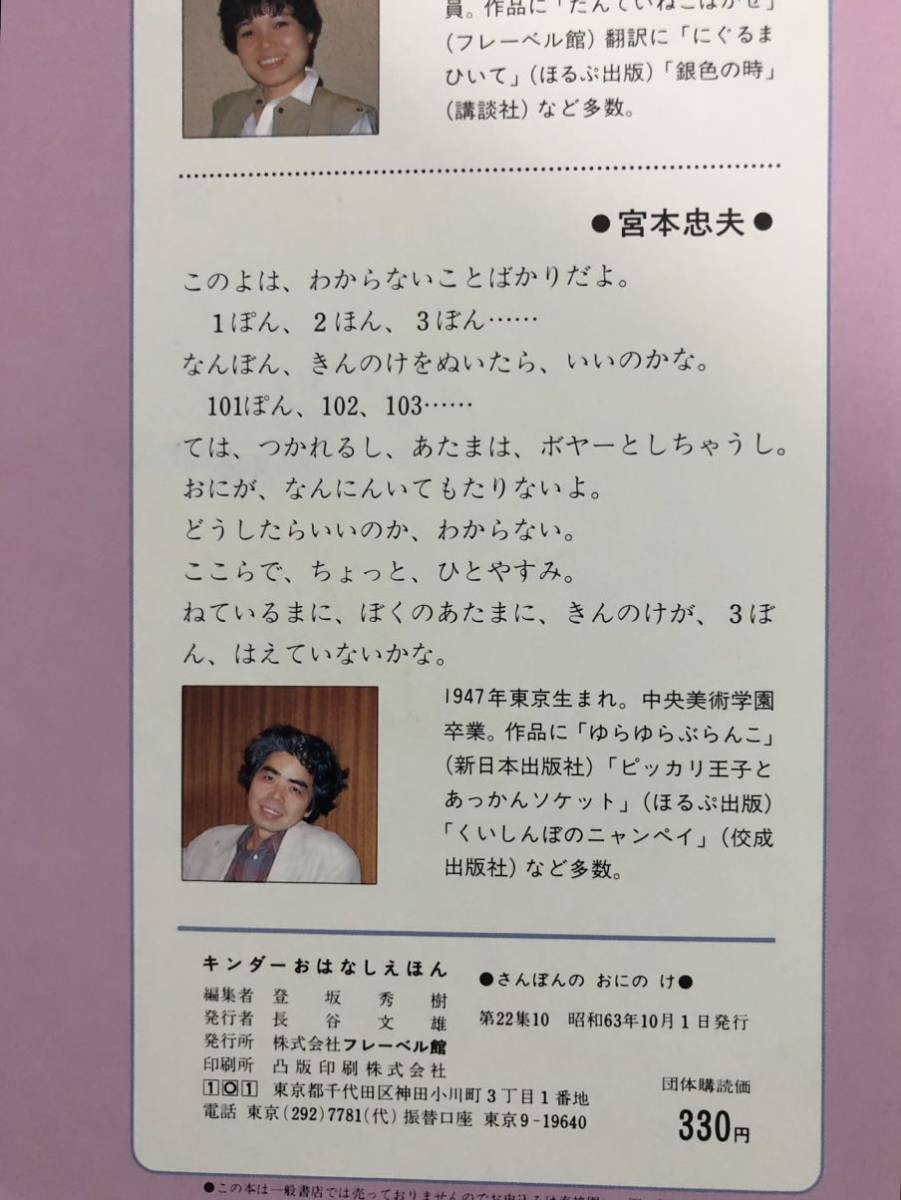 員。作品に「たんていねこはかせ」
(フレーベル館) 翻訳に「にぐるま
ひいて」(ほるぷ出版)「銀色の時」
(講談社) など多数。
●宮本忠夫●
このよは、わからないことばかりだよ。
1ぽん、2ほん、3ぼん……
なんぼん、きんのけをぬいたら、いいのかな。
101ぽん、102、103……
ては、つかれるし、あたまは、ボヤーとしちゃうし。
おにが、なんにんいてもたりないよ。
どうしたらいいのか、わからない。
ここらで、ちょっと、ひとやすみ。
ねているまに、ぼくのあたまに、きんのけが、3ぼ
ん、はえていないかな。
1947年東京生まれ。中央美術学園
卒業。作品に「ゆらゆらぶらんこ」
(新日本出版社)「ピッカリ王子と
あっかんソケット」(ほるぷ出版)
「くいしんぼのニャンペイ」(佼成
出版社) など多数。
キンダーおはなしえほん
編集者 登坂秀樹
発行者 長谷文雄
発行所 株式会社フレーベル館
印刷所 凸版印刷株式会社
101 東京都千代田区神田小川町3丁目1番地
電話 東京(292)7781(代) 振替口座 東京9-19640
●さんぼんの おにの け●
第22集10 昭和63年10月1日発行
団体購読価
330円
●この本は一般書店では売っておりませんのでお申込みは直接園